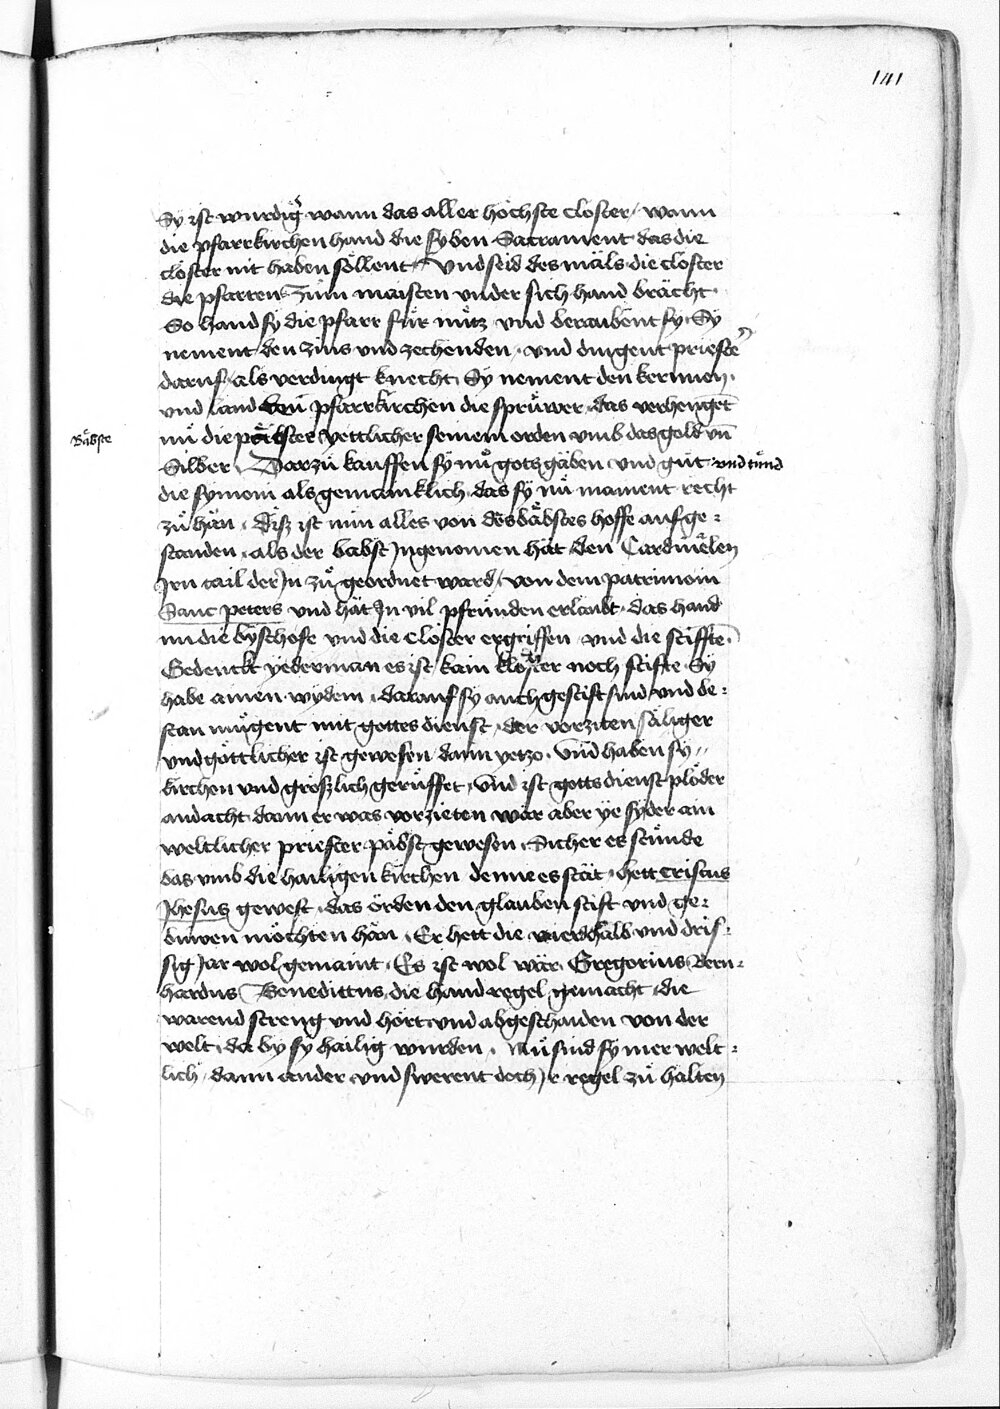 141
Sy ist wurdiger wann das aller höchste closter / wann
die pfarrkirchen hand die syben Sacrament das die
clöster nit haben söllent / Und seid des mäls die clöster
die pfarren zum maisten under sich hand brächt
So hand sy die pfarr für nütz und beraubent sy Sy
nement den zins und zechenden / und dingent priester
daruf / als verdingt knecht Sy nement den kernnen
und land den pfarrkirchen die sprüwer das verhenget
Bäbste
nü die päbster yettlicher seinem orden umb das gold und
Silber Darzü kauffen sy nü gots gäben und güt und tünd
die symoni als gemainklich das sy nü mainent recht
zü hän Diss ist nun alles von des bäbstes hoffe auf ge=
standen als der babst Ingenomen hät den Cardinelen
Irn tail der In zü geordnet ward / von dem patrimoin
Sanc peters und hät In vil pfründen erlaubt das hand
nu die byschofe und die clöster ergriffen und die stiffte
Gedenckt yederman es ist kain kloster noch stifte Sy
habe ainen wydem darauf sy auch gestift sind und be=
stan mügent mit gottes dienst der vorziten säliger
und göttlicher ist gewesen dann yetzo Und haben sy
kirchen und grösslich gerüffet Und ist gotts dienst plöder
andacht dann er was vorzieten wär aber ye syder ain
weltlicher priester päbst gewesen Sicher es stünde
bas umb die hailigen kirchen denne es stät hett cristus
Jhesus gewest das örden den glauben stift und ge=
buwen möchten hän Er hett die vierdhalb und dris=
sig Jar wol gemaint Es ist wol wär Gregorius Bern=
hardus Benedittus die hand regel gemacht die
warend streng und hört und abgeschaiden von der
welt da by sy hailig wurden Nü sind sy mer welt=
lich dann ander und swerent doch Ir regel zü halten